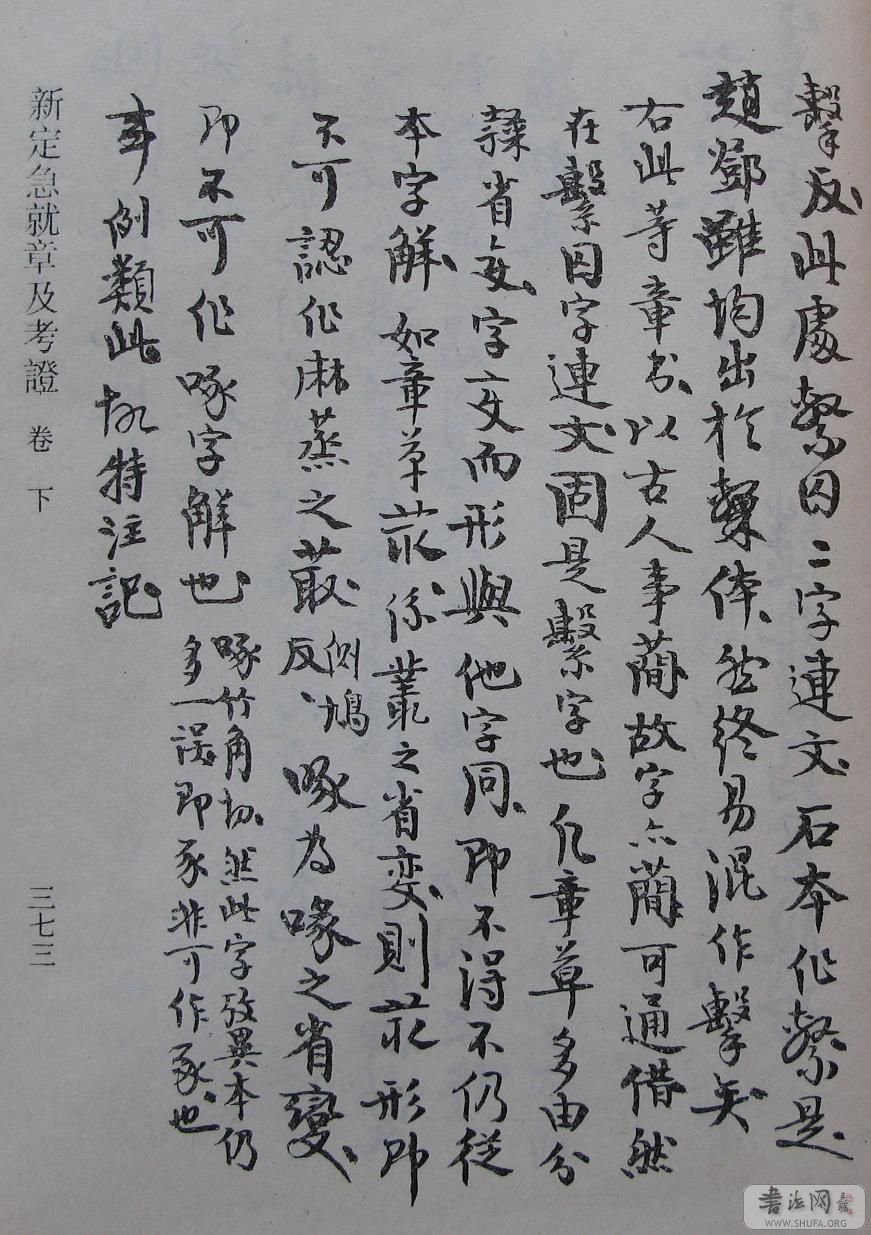 擊反此處繫囚二字連文石本作繫是
趙鄧雖均出於隸体然終易混作擊矣
右此等章書以古人事蕳故字亦蕳可通借然
在繫囚字連文固是繫字也凡章草多由分
隸省変字变而形與他字同即不得不仍從
本字解如章草菆係叢之省变則菆形即
不可認作麻蒸之菆側鳩反啄為喙之省變
即不可作啄字解也啄竹角切然此字攷異本仍多一誤即豖非可作豕也
事例類此特注記
新定急就章及考證 卷 下 三七三
書法网
WWW.SHUFA.ORG